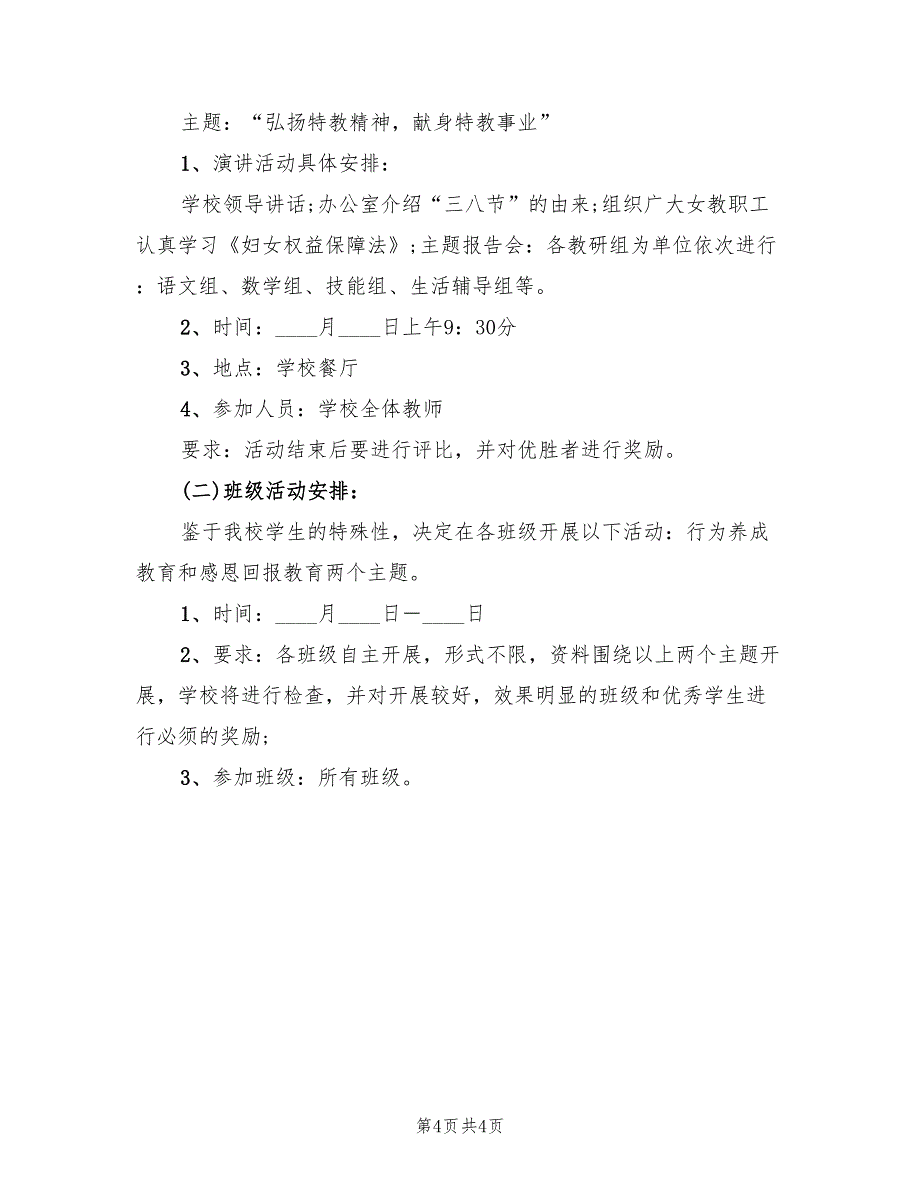 主题：“弘扬特教精神，献身特教事业”
1、演讲活动具体安排：
学校领导讲话;办公室介绍“三八节”的由来;组织广大女教职工
认真学习《妇女权益保障法》;主题报告会：各教研组为单位依次进行
：语文组、数学组、技能组、生活辅导组等。
2、时间：____月____日上午9：30分
3、地点：学校餐厅
4、参加人员：学校全体教师
要求：活动结束后要进行评比，并对优胜者进行奖励。
(二)班级活动安排：
鉴于我校学生的特殊性，决定在各班级开展以下活动：行为养成
教育和感恩回报教育两个主题。
1、时间：____月____日－____日
2、要求：各班级自主开展，形式不限，资料围绕以上两个主题开
展，学校将进行检查，并对开展较好，效果明显的班级和优秀学生进
行必须的奖励;
3、参加班级：所有班级。
第4页 共4页